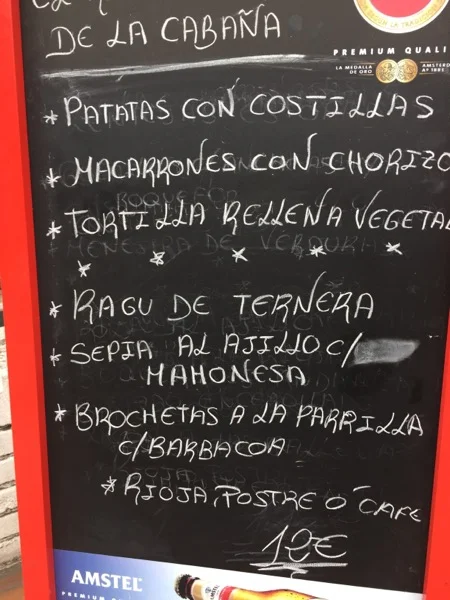 DE LA CABAÑA
PREMIUM QUALI
LA MEDALLA DE ORO
AMSTERD Aº 1883
* PATATAS CON COSTILLAS
* MACARRONES CON CHORIZO
* TORTILLA RELLENA VEGETAL
* * * * *
* RAGU DE TERNERA
* SEPIA AL AJILLO C/
MAHONESA
* BROCHETAS A LA PARRILLA
C/BARBACOA
* RIOJA, POSTRE O CAFE
12€
AMSTEL